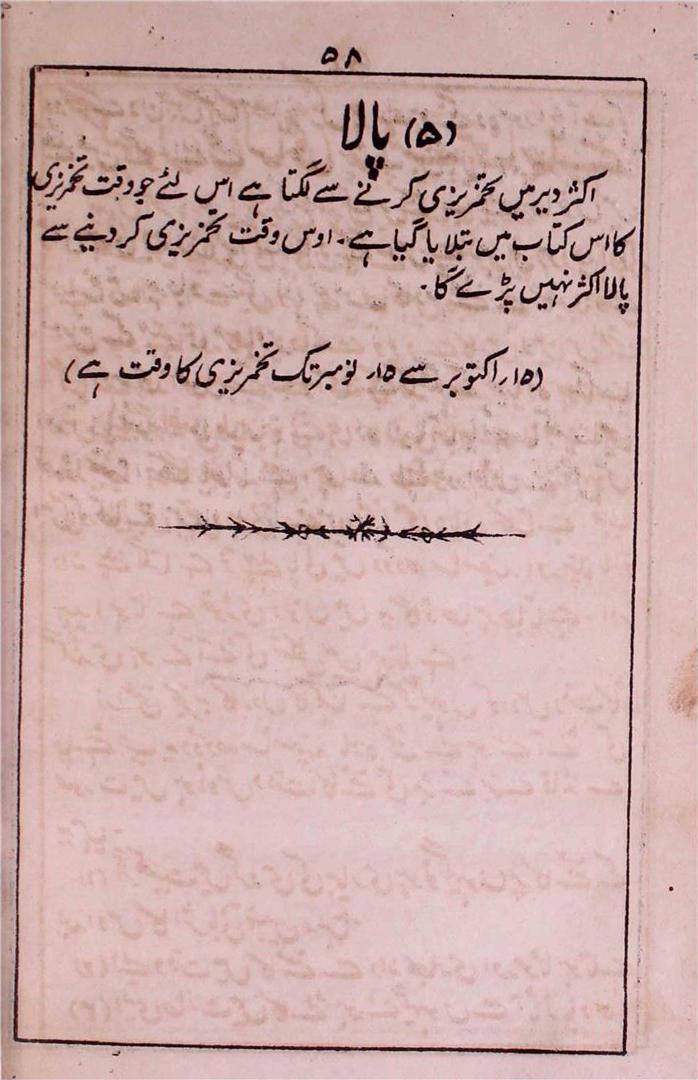 ۵۸
(۵) پالا
اکثر دیر میں تخمریزی کرنے سے لگتا ہے اس لئے جو وقت تخمریزی
کا اس کتاب میں بتلایا گیا ہے۔ اوس وقت تخمریزی کر دینے سے
پالا اکثر نہیں پڑے گا۔
(۱۵؍ اکتوبر سے ۱۵؍ نومبر تک تخمریزی کا وقت ہے)